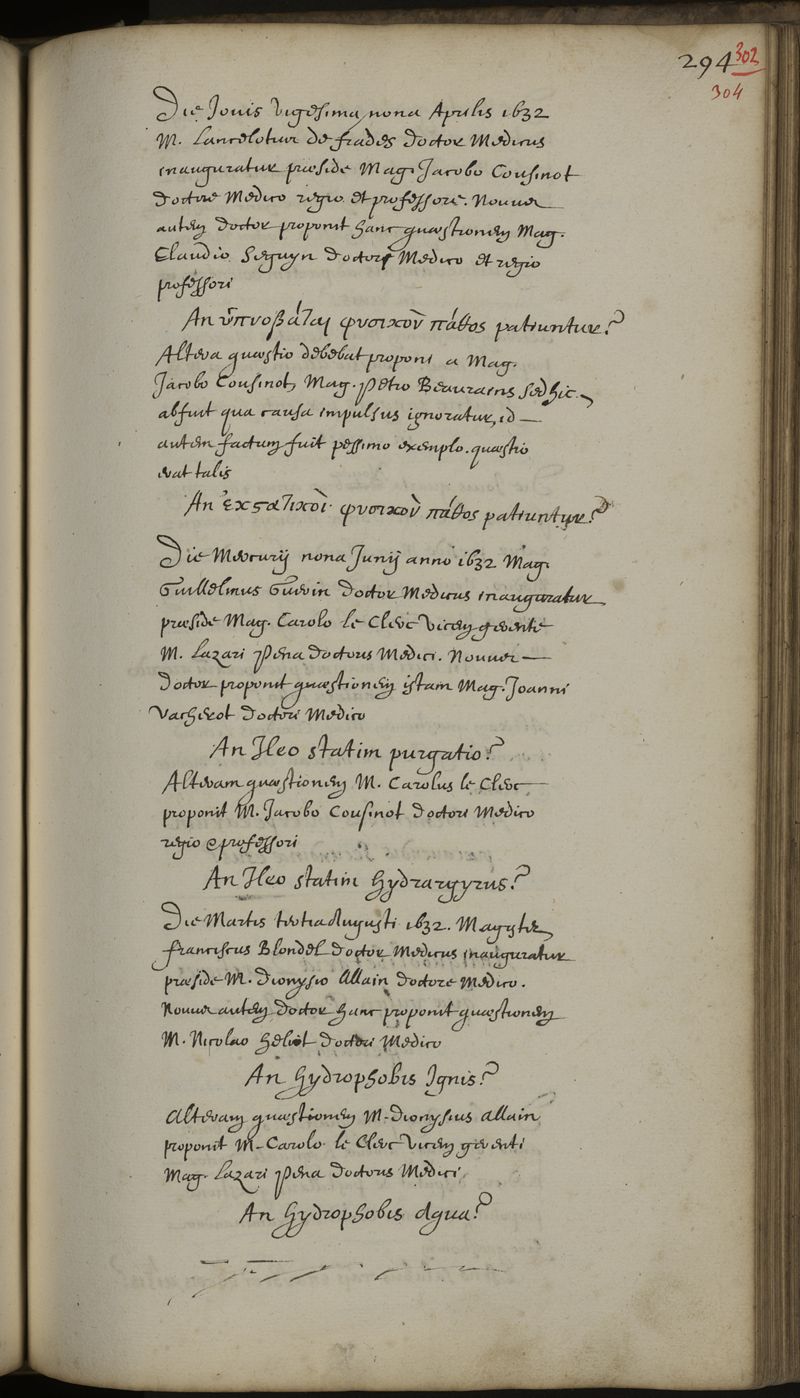 294 302
304
Die Jovis vigesima nona Aprilis 1632
M. Lancelotus de frades doctor Medicus
inauguratur præside Mag. Jacobo Cousinot
doctore Medico regio et professore. Nouus
autem doctor proponit hanc quæstionem Mag.
Claudio Seguyn doctori Medico et regio
professori
An ὑπνοβάται φυσικὸν πάθος patiuntur?
Altera quæstio debebat proponi a Mag.
Jacobo Cousinot, Mag. Petro Beaurains sed hic
abfuit qua causa impulsus ignoratur, id
autem factum fuit pessimo exemplo. quæstio
erat talis
An ἐκςατικοὶ φυσικὸν πάθος patiuntur?
Die Mercurij nona Junij anno 1632 Mag.
Guillelmus Guerin doctor Medicus inauguratur
præside Mag. Carolo le Clerc vicem gerente
M. Lazari Pena doctoris Medici. Nouus
doctor proponit quæstionem istam Mag. Joanni
Vacherot doctori Medico
An Ileo statim purgatio?
Alteram quæstionem M. Carolus le Clerc
proponit M. Jacobo Cousinot doctori Medico
regio & professori
An Ileo statim hydrargyrus?
Die Martis tertia Augusti 1632. Magister
franciscus Blondel doctor Medicus inauguratur
præside M. Dionysio Allain doctore Medico.
Nouus autem doctor hanc proponit quæstionem
M. Nicolao Heliot doctori Medico
An hydrophobis Ignis?
Alteram quæstionem M. Dionysius Allain
proponit M. Carolo le Clerc vicem gerenti
Mag. Lazari Pena doctoris Medici
An hydrophobis Aqua?